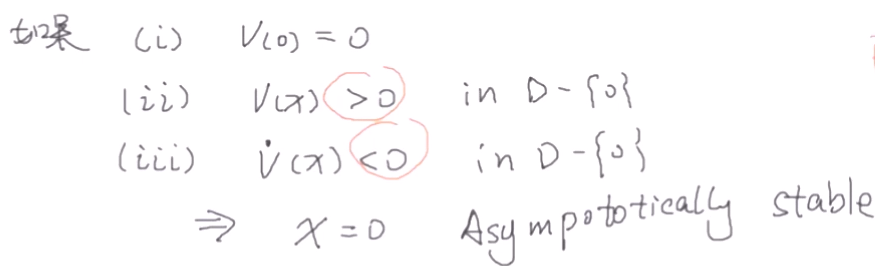 如果 (i) V(0) = 0
(ii) V(x) > 0 in D - {0}
(iii) V̇(x) < 0 in D - {0}
⇒ x = 0 Asympototically stable